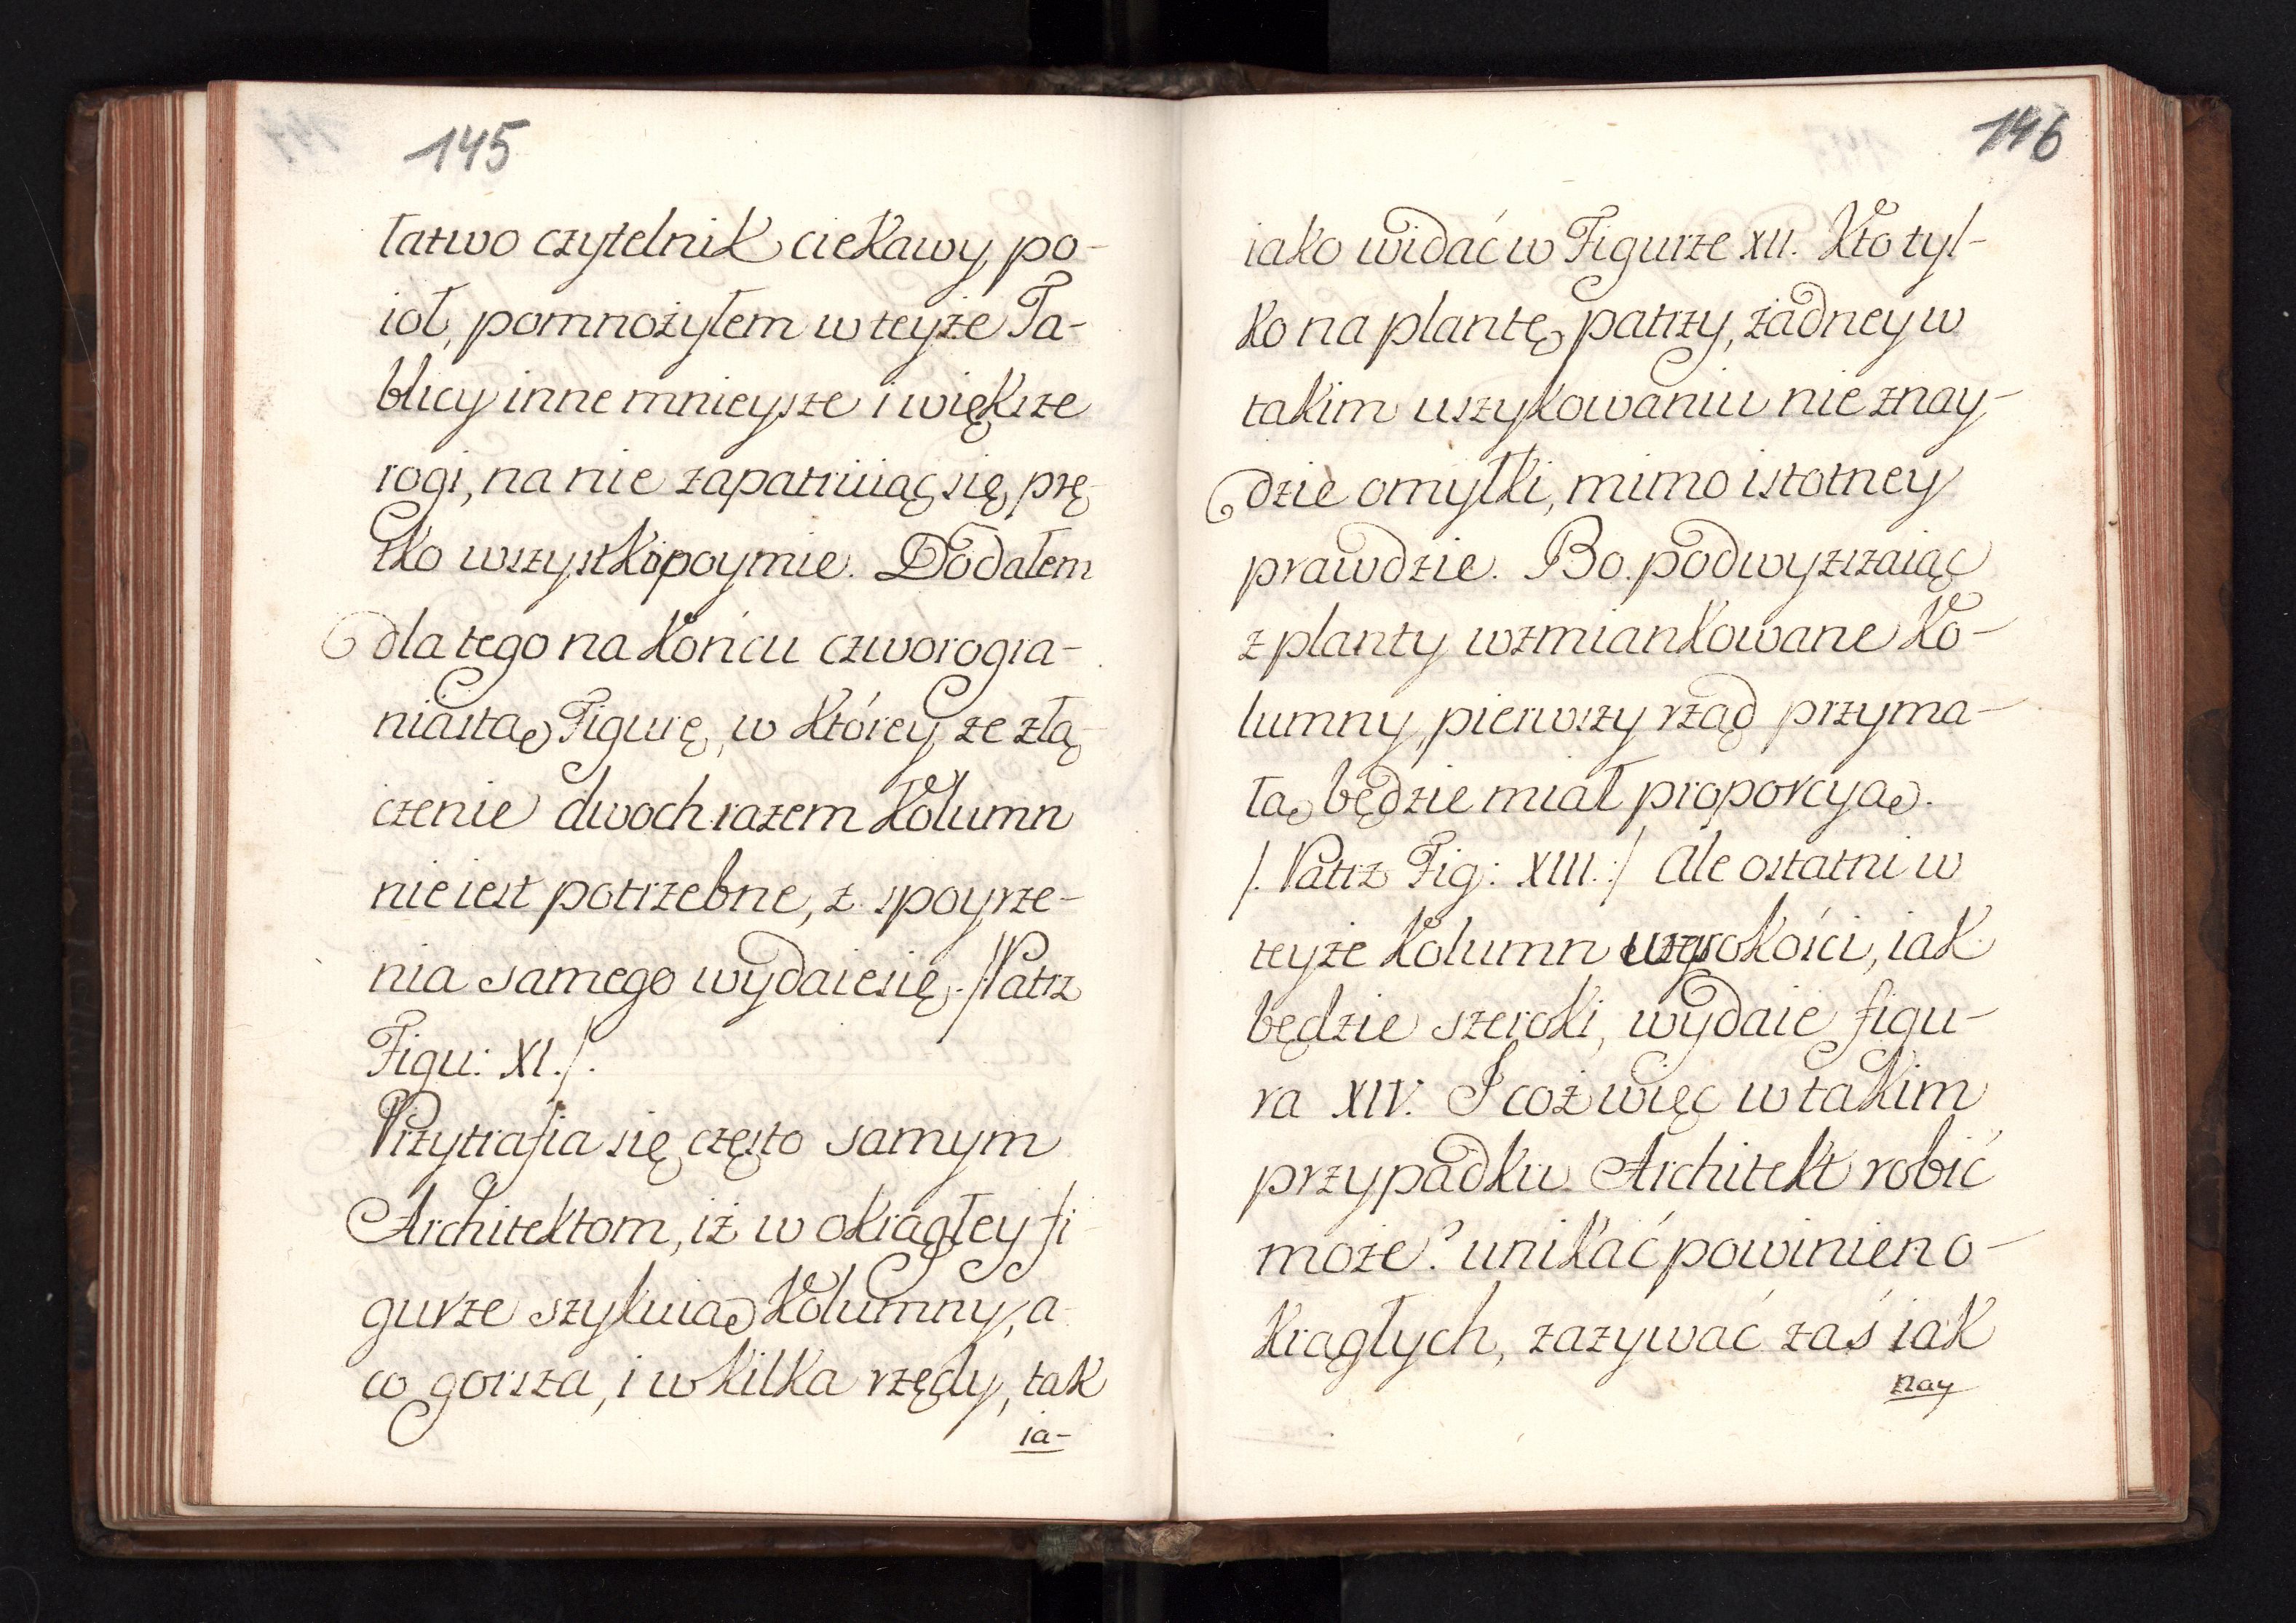 145
łatwo czytelnik ciekawy po-
ioł, pomnożyłem w teyże Ta-
blicy inne mnieysze i większe
rogi, na nie zapatruiąc się, prę-
tko wszystko poymie. Dodałem
dla tego na końcu czworogra-
niastą Figurę, w którey, że złą-
czenie dwoch razem Kolumn
nie iest potrzebne, z spoyrze-
nia samego wydaie się. /:Patrz
Figu: XI./.
Przytrafia się często samym
Architektom, iż w okrągłey fi-
gurze szykuią Kolumny, a
co gorsza, i w kilka rzędy, tak
ia-
146
iako widać w Figurze XII. Kto tyl-
ko na plantę patrzy, żadney w
takim uszykowaniu nie znay-
dzie omyłki, mimo istotney
prawdzie. Bo podwyższaiąc
z planty wzmiankowane Ko-
lumny, pierwszy rząd przyma-
łą będzie miał proporcyą.
/. Patrz Fig: XIII:/ Ale ostatni w
teyże Kolumn szerokości, iak
będzie szeroki, wydaie figu-
ra XIV. I coż więc w takim
przypadku Architekt robić
może? unikać powinien o-
krągłych, zażywać zaś iak
nay